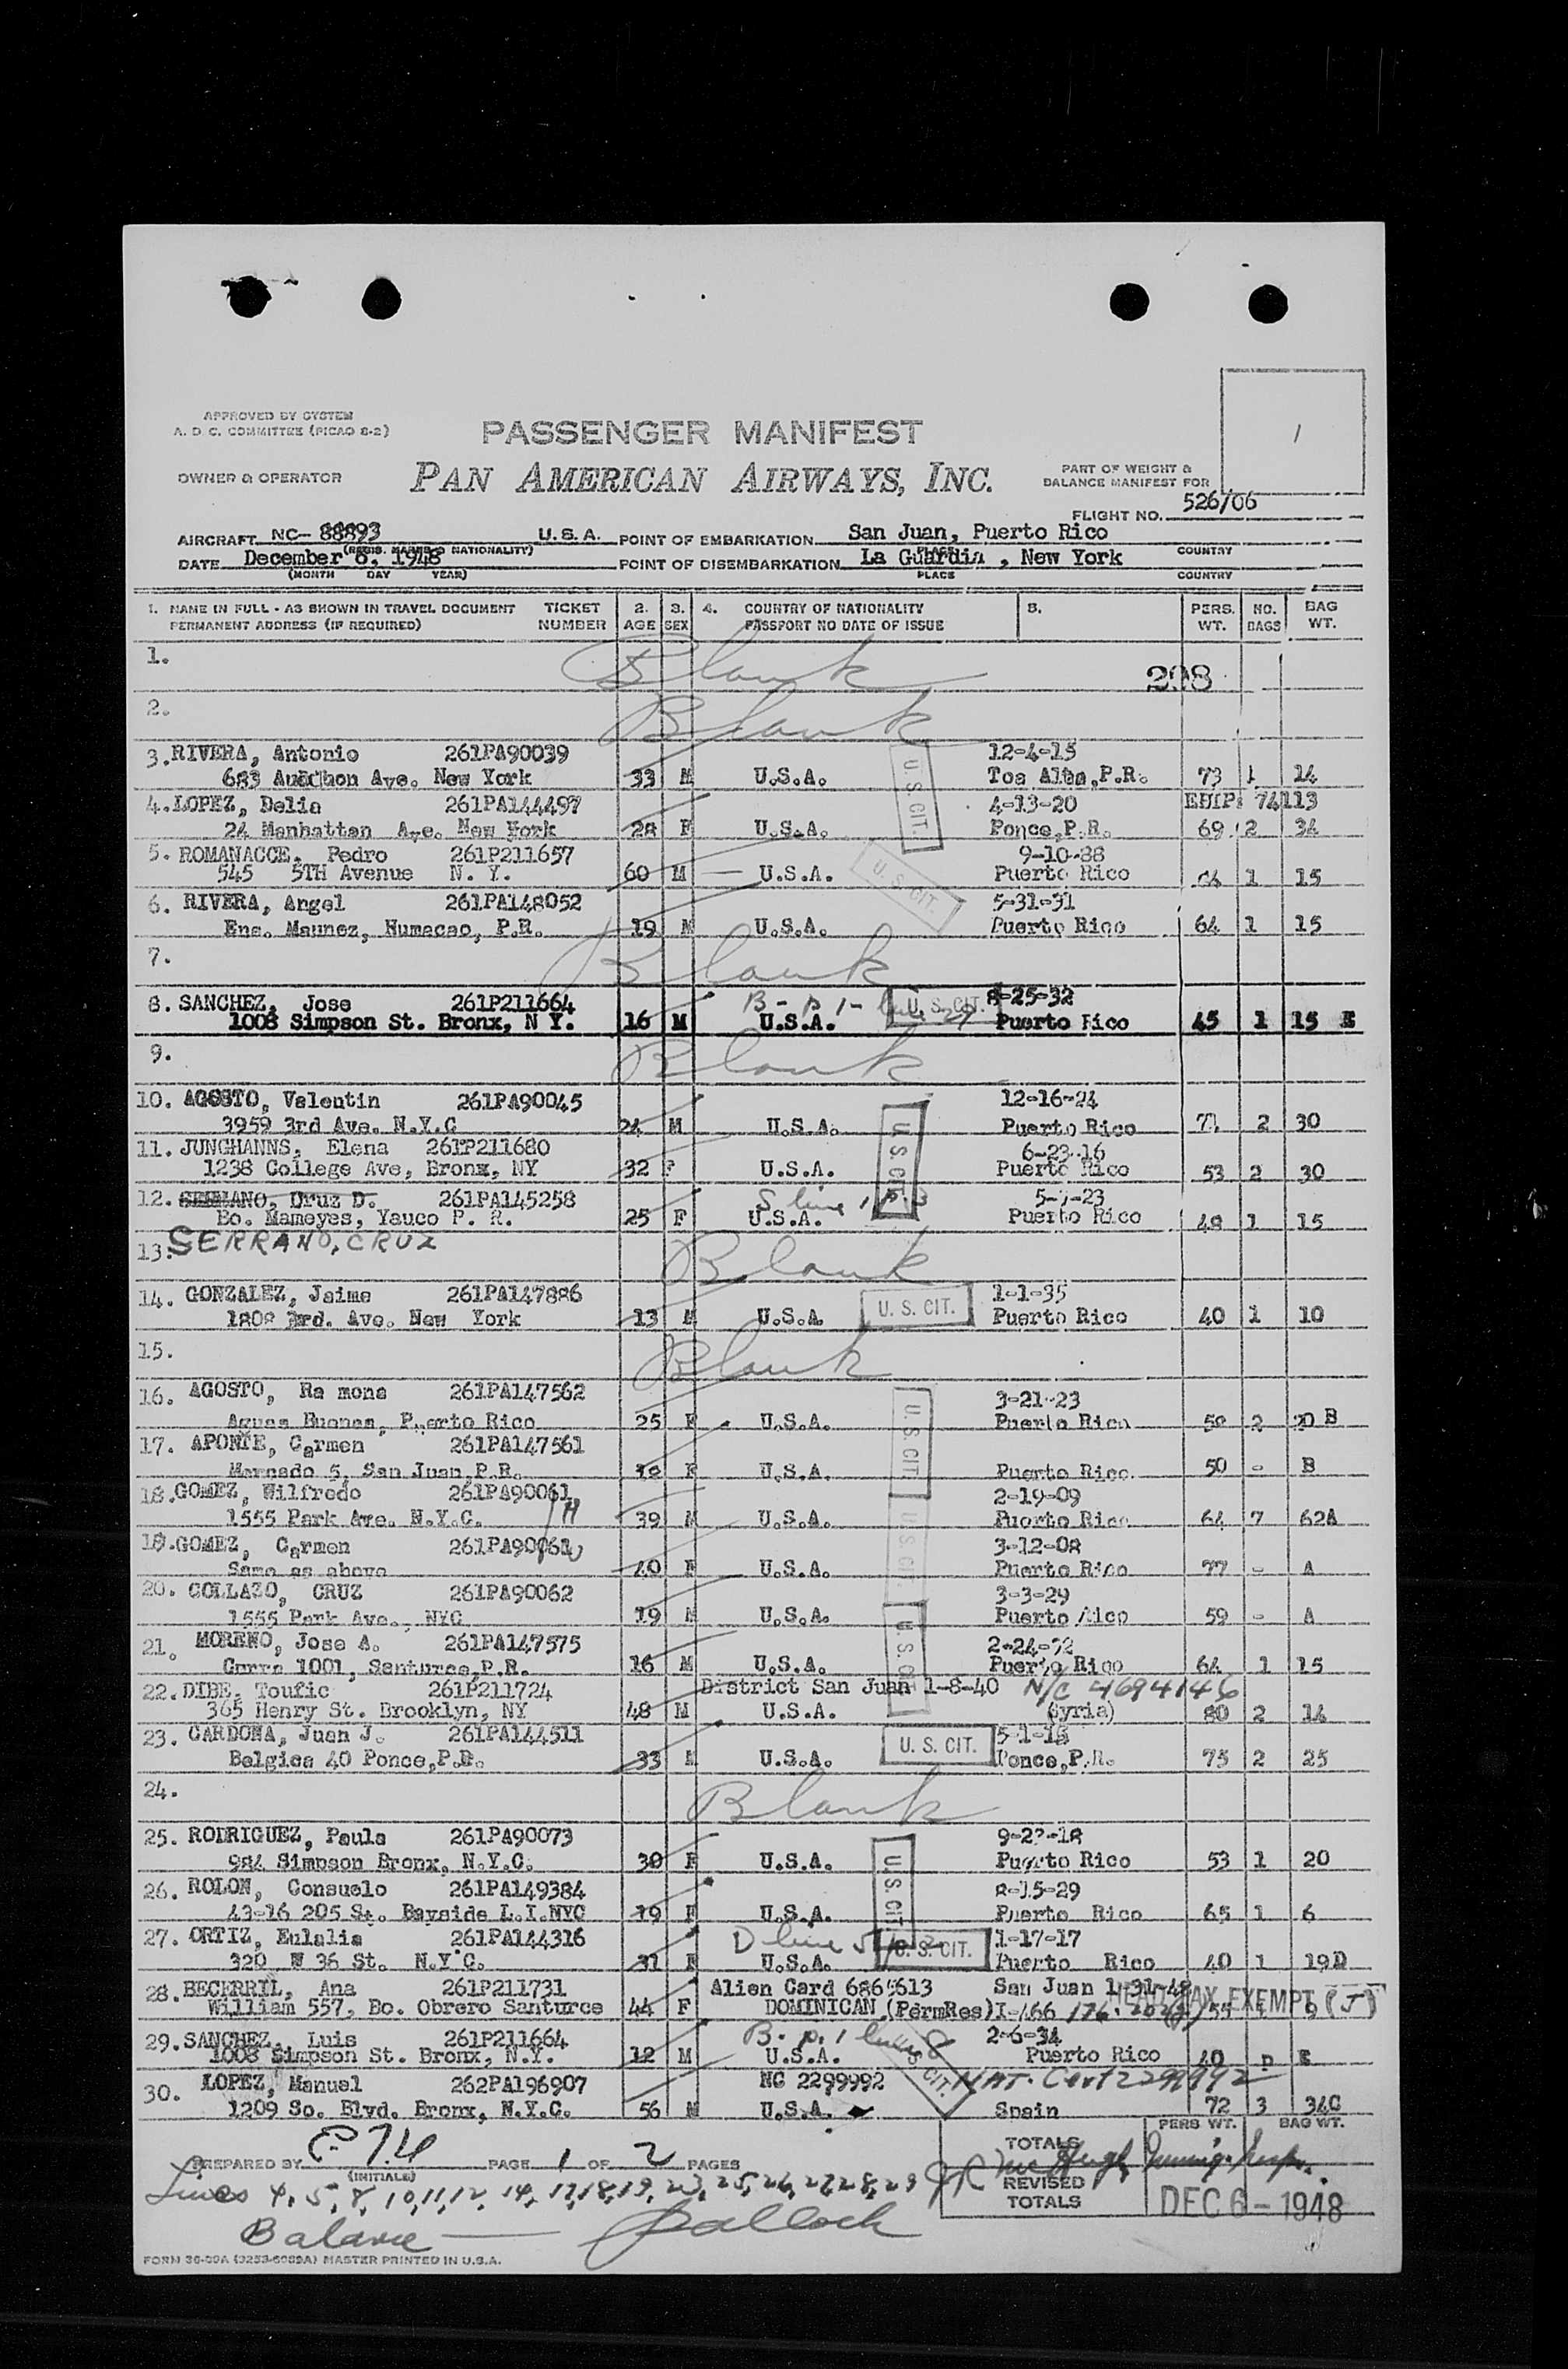 APPROVED BY SYSTEM
A. D. C. COMMITTEE (PICAO S-2)
PASSENGER MANIFEST
1
OWNER & OPERATOR
PAN AMERICAN AIRWAYS, INC.
PART OF WEIGHT &
BALANCE MANIFEST FOR
FLIGHT NO. 526/06
AIRCRAFT NC- 88893 U. S. A. POINT OF EMBARKATION San Juan, Puerto Rico
(REGIS. MARKS & NATIONALITY) PLACE COUNTRY
DATE December 6, 1948 POINT OF DISEMBARKATION La Guardia , New York
(MONTH DAY YEAR) PLACE COUNTRY
1. NAME IN FULL - AS SHOWN IN TRAVEL DOCUMENT TICKET 2. 3. 4. COUNTRY OF NATIONALITY 5. PERS. NO. BAG
PERMANENT ADDRESS (IF REQUIRED) NUMBER AGE SEX PASSPORT NO DATE OF ISSUE WT. BAGS WT.
1. Blank 298
2. Blank
3. RIVERA, Antonio 261PA90039 12-4-15
683 Audubon Ave. New York 33 M U.S.A. U. S. CIT. Toa Alta, P.R. 73 1 14
4. LOPEZ, Delia 261PA144497 4-13-20 74113
24 Manhattan Ave. New York 28 F U.S.A. Ponce, P.R. 69 2 34
5. ROMANACCE, Pedro 261P211657 9-10-88
545 5TH Avenue N. Y. 60 M U.S.A. U. S. CIT. Puerto Rico 1 15
6. RIVERA, Angel 261PA148052 5-31-31
Ens. Maunez, Humacao, P.R. 19 M U.S.A. Puerto Rico 64 1 15
7. Blank
8. SANCHEZ, Jose 261P211664 B - p 1 - line 29 U. S. CIT. 8-25-32
1008 Simpson St. Bronx, N Y. 16 M U.S.A. Puerto Rico 45 1 15 E
9. Blank
10. AGOSTO, Valentin 261PA90045 12-16-24
3959 3rd Ave. N.Y.C 24 M U.S.A. Puerto Rico 2 30
11. JUNGHANNS, Elena 261P211680 U. S. CIT. 6-23-16
1238 College Ave, Bronx, NY 32 F U.S.A. Puerto Rico 53 2 30
12. SERRANO, Cruz D. 261PA145258 S line 1 p. 2
Bo. Mameyes, Yauco P. R. 25 F U.S.A. Puerto Rico 48 1 15
13. SERRANO, CRUZ Blank
14. GONZALEZ, Jaime 261PA147886 1-1-35
1808 3rd. Ave. New York 13 M U.S.A U. S. CIT. Puerto Rico 40 1 10
15. Blank
16. AGOSTO, Ra mona 261PA147562 3-21-23
Aguas Buenas, Puerto Rico 25 F U.S.A. Puerto Rico 2 B
17. APONTE, Carmen 261PA147561 U. S. CIT.
Mercado 5, San Juan, P.R. F U.S.A. Puerto Rico 50 - B
18. GOMEZ, Wilfredo 261PA90061 H 2-19-09
1555 Park Ave. N.Y.C. 39 M U.S.A. Puerto Rico 64 7 62A
19. GOMEZ, Carmen 261PA90061 W U. S. CIT. 3-12-08
Same as above 40 F U.S.A. Puerto Rico 77 - A
20. COLLAZO, CRUZ 261PA90062 3-3-29
1555 Park Ave., NYC 19 M U.S.A. Puerto Rico 59 - A
21. MORENO, Jose A. 261PA147575 U. S. CIT. 2-24-32
Cerra 1001, Santurce, P.R. 16 M U.S.A. Puerto Rico 64 1 15
22. DIBE, Toufic 261P211724 District San Juan 1-8-40 N/C 4694146
365 Henry St. Brooklyn, NY 48 M U.S.A. (Syria) 80 2 14
23. CARDONA, Juan J. 261PA144511 5-1-15
Belgica 40 Ponce, P.R. 33 M U.S.A. U. S. CIT. Ponce, P.R. 75 2 25
24. Blank
25. RODRIGUEZ, Paula 261PA90073
984 Simpson Bronx, N.Y.C. 30 F U.S.A. Puerto Rico 53 1 20
26. ROLON, Consuelo 261PA149384 U. S. CIT. 8-15-29
43-16 205 St. Bayside L.I.NYC 19 F U.S.A. Puerto Rico 65 1 6
27. ORTIZ, Eulalia 261PA144316 D line 5 p 2 U. S. CIT. 1-17-17
320 W 36 St. N.Y.C. 31 F U.S.A. Puerto Rico 40 1 19D
28. BECERRIL, Ana 261P211731 Alien Card San Juan HEAD TAX EXEMPT (J)
William 557, Bo. Obrero Santurce 44 F DOMINICAN (PermRes) I-466 55 1 9
29. SANCHEZ, Luis 261P211664 B. p. 1 line 8 2-6-34
1008 Simpson St. Bronx, N.Y. 12 M U.S.A. U. S. CIT. Puerto Rico 40 E
30. LOPEZ, Manuel 262PA196907 NC 2299992 NAT. Cert 2299992
1209 So. Blvd. Bronx, N.Y.C. 56 M U.S.A. Spain 72 3 34C
PERS WT. BAG WT.
PREPARED BY PAGE 1 OF 2 PAGES TOTALS
(INITIALS) J R McHugh Immig. Insp.
Lines 4, 5, 8, 10, 11, 12, 14, 17, 18, 19, 23, 25, 26, 27, 28, 29 REVISED
TOTALS DEC 6 - 1948
Balance Pallock
FORM 36-09A (3253-6089A) MASTER PRINTED IN U.S.A.